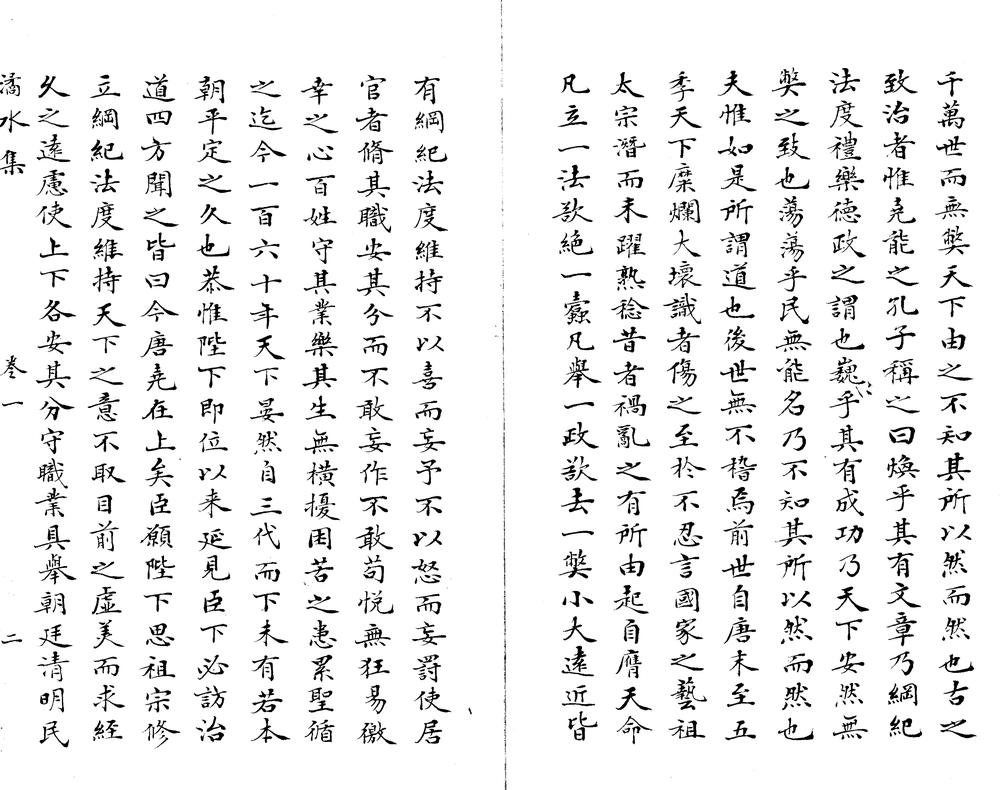 千萬世而無獘天下由之不知其所以然而然也古之
致治者惟堯能之孔子稱之曰煥乎其有文章乃綱紀
法度禮樂德政之謂也巍巍乎其有成功乃天下安然無
獘之致也蕩蕩乎民無能名乃不知其所以然而然也
夫惟如是所謂道也後世無不稽焉前世自唐末至五
季天下糜爛大壞識者傷之至於不忍言國家之藝祖
太宗潛而未躍熟稔昔者禍亂之有所由起自膺天命
凡立一法欲絕一蠹凡舉一政欲去一獘小大遠近皆
有綱紀法度維持不以喜而妄予不以怒而妄罸使居
官者脩其職安其分而不敢妄作不敢苟悅無狂易徼
幸之心百姓守其業樂其生無橫擾困苦之患累聖循
之迄今一百六十年天下晏然自三代而下未有若本
朝平定之久也恭惟陛下即位以来延見臣下必訪治
道四方聞之皆曰今唐堯在上矣臣願陛下思祖宗修
立綱紀法度維持天下之意不取目前之虛美而求經
久之遠慮使上下各安其分守職業具舉朝廷清明民
潏水集 卷一 二